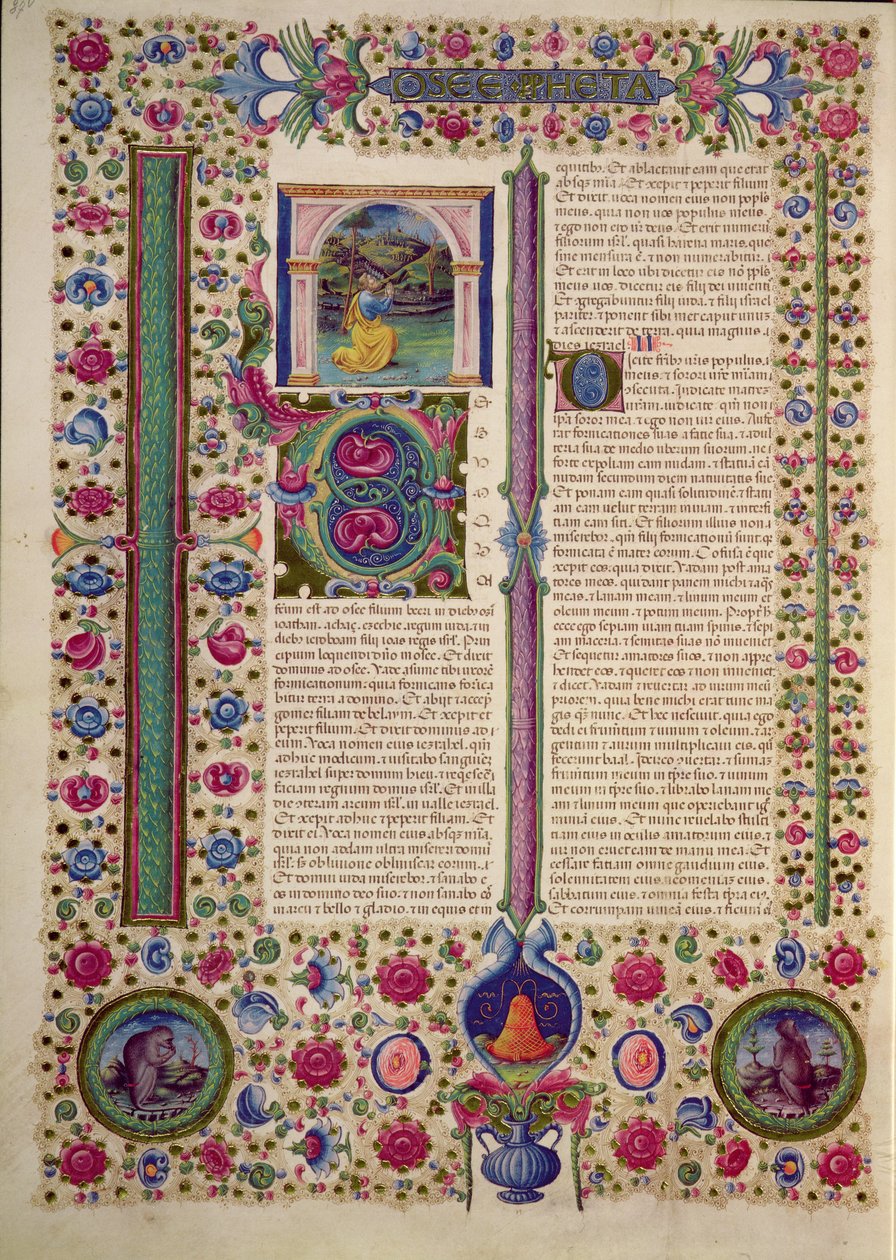 OSEE PHETA
Et
B
V
D
Q
D
A
ferum est ad osee filium beeri in diebus ozi
ioathan. achaz. ezechie. regum iuda. ⁊ in
dieb; ieroboam filij ioas regis isrł. Prin
cipium loquendi dño in osee. Et dixit
dominus ad osee. Vade asume tibi uxorē
fornicationum. quia fornicans fornica
bitur terra a domino. Et abijt ⁊ accep
gomer filiam debelaym. Et xcepit et
peperit filium. Et dixit dominus ad
eum. Voca nomen eius iezrahel. qm̄
adhuc modicum. ⁊ uisitabo sanguiēz
iezrahel super domum hieu. ⁊ reqescē
faciam regnum domus isrł. Et in illa
die ꝯteram arcum isrł. in ualle iezrael.
Et xcepit adhuc ⁊ peperit filiam. Et
dixit ei. Voca nomen eius absq; mīa.
quia non addam ultra misereri domui
isrł. s; obliuione obliuiscar eorum.
Et domui iuda miserebor. ⁊ sanabo e
os in domino deo suo. ⁊ non sanabo eō
in arcu ⁊ bello ⁊ gladio. ⁊ in equis et in
equitib;. Et ablactauit eam que erat
absq; mīa. Et xcepit ⁊ peperit filium
Et dixit. uoca nomen eius non popls
meus. quia non uos populus meus.
⁊ ego non ero ur̄ deus. Et erit numerꝰ
filiorum isrł. quasi harena maris. que
sine mensura ē. ⁊ non numerabitur.
Et erit in loco ubi dicetur eis nō ppls
meus uos. dicetur eis filij dei uiuenti
Et ꝯgregabuntur filij iuda. ⁊ filij israel
pariter. ⁊ ponent sibimet caput unuz
⁊ ascendent de terra. quia magnus.
dies iezrael. II
Dicite frib; uris populus.
meus. ⁊ sorori ure mīam
ꝯsecuta. Iudicate matrez
uram. iudicate. qm̄ non
ipsa uxor mea. ⁊ ego non uir eius. Aufe
rat fornicationes suas a facie sua. ⁊ adul
teria sua de medio uberum suorum. ne
forte expoliam eam nudam. ⁊ statuā eā
nudam secundum diem natiuitatis sue
Et ponam eam quasi solitudinē. ⁊ statu
am eam uelut terram inuiam. ⁊ interfi
ciam eam siti. Et filiorum illius non
miserebor. qm̄ filij fornicationum sunt. q;
fornicata ē mater eorum. Cōfusa ē que
xcepit eos. quia dixit. Vadam post ama
tores meos. qui dant panem michi ⁊ aq̄s
meas. ⁊ lanam meam. ⁊ linum meum et
oleum meum. ⁊ potum meum. Propt̄ h̄
ecce ego sepiam uiam tuam spinis. ⁊ sepi
am maceria. ⁊ semitas suas nō inueniet
Et sequetur amatores suos. ⁊ non appre
hendet eos. ⁊ queret eos ⁊ non inueniet
⁊ dicet. Vadam ⁊ reuertar ad uirum meū
priorem. quia bene michi erat tunc ma
gis q̄ nunc. Et hec nesciuit. quia ego
dedi ei frumentum ⁊ uinum ⁊ oleum. ⁊ ar
gentum ⁊ aurum multiplicaui eis. q̄
fecerunt baal. Idcirco ꝯuertar. ⁊ sumaz
frumentum meum in tp̄re suo. ⁊ uinum
meum in tp̄re suo. ⁊ liberabo lanam me
am ⁊ linum meum que operiebant ig
miniā eius. Et nunc reuelabo stulti
tiam eius in oculis amatorum eius. ⁊
uir non eruet eam de manu mea. Et
cessare faciam omne gaudium eius.
solennitatem eius. neomenias eius.
sabbatum eius. ⁊ omnia festa tp̄ra eiꝰ.
Et corrumpam uineā eius. ⁊ ficum eꝰ